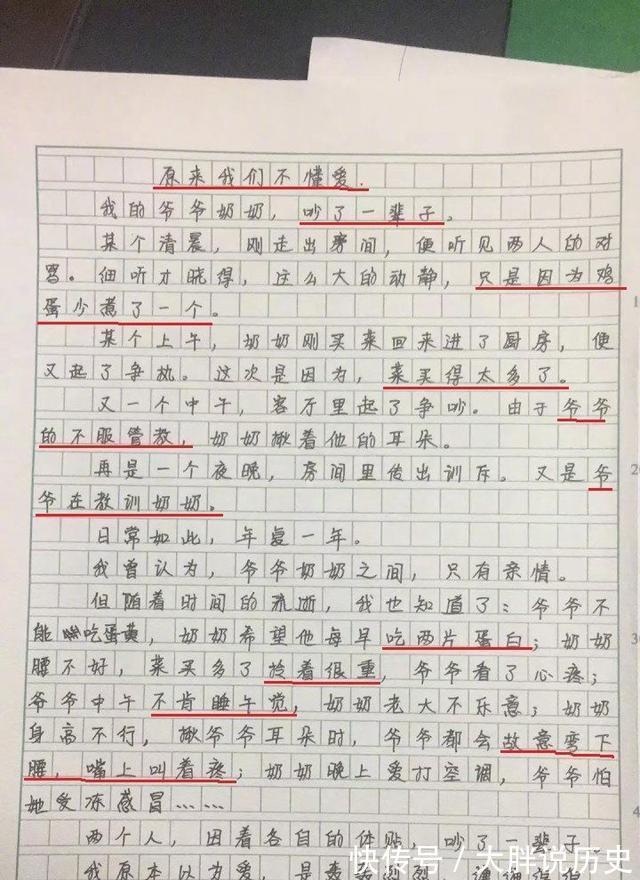 原来我们不懂爱.
我的爷爷奶奶，吵了一辈子。
某个清晨，刚走出房间，便听见两人的对
骂。细听才晓得，这么大的动静，只是因为鸡
蛋少煮了一个。
某个上午，奶奶刚买菜回来进了厨房，便
又起了争执。这次是因为，菜买得太多了。
又一个中午，客厅里起了争吵。由于爷爷
的不服管教，奶奶揪着他的耳朵。
再是一个夜晚，房间里传出训斥。又是爷
爷在教训奶奶。
日常如此，年复一年。
我曾认为，爷爷奶奶之间，只有亲情。
但随着时间的流逝，我也知道了：爷爷不
能吃蛋黄，奶奶希望他每早吃两片蛋白；奶奶
腰不好，菜买多了拎着很重，爷爷看了心疼；
爷爷中午不肯睡午觉，奶奶老大不乐意；奶奶
身高不行，揪爷爷耳朵时，爷爷都会故意弯下
腰，嘴上叫着疼；奶奶晚上爱打空调，爷爷怕
她受冻感冒……
两个人，因着各自的体贴，吵了一辈子。
我原本以为爱，是轰轰烈烈，
快传号/大胖说历史